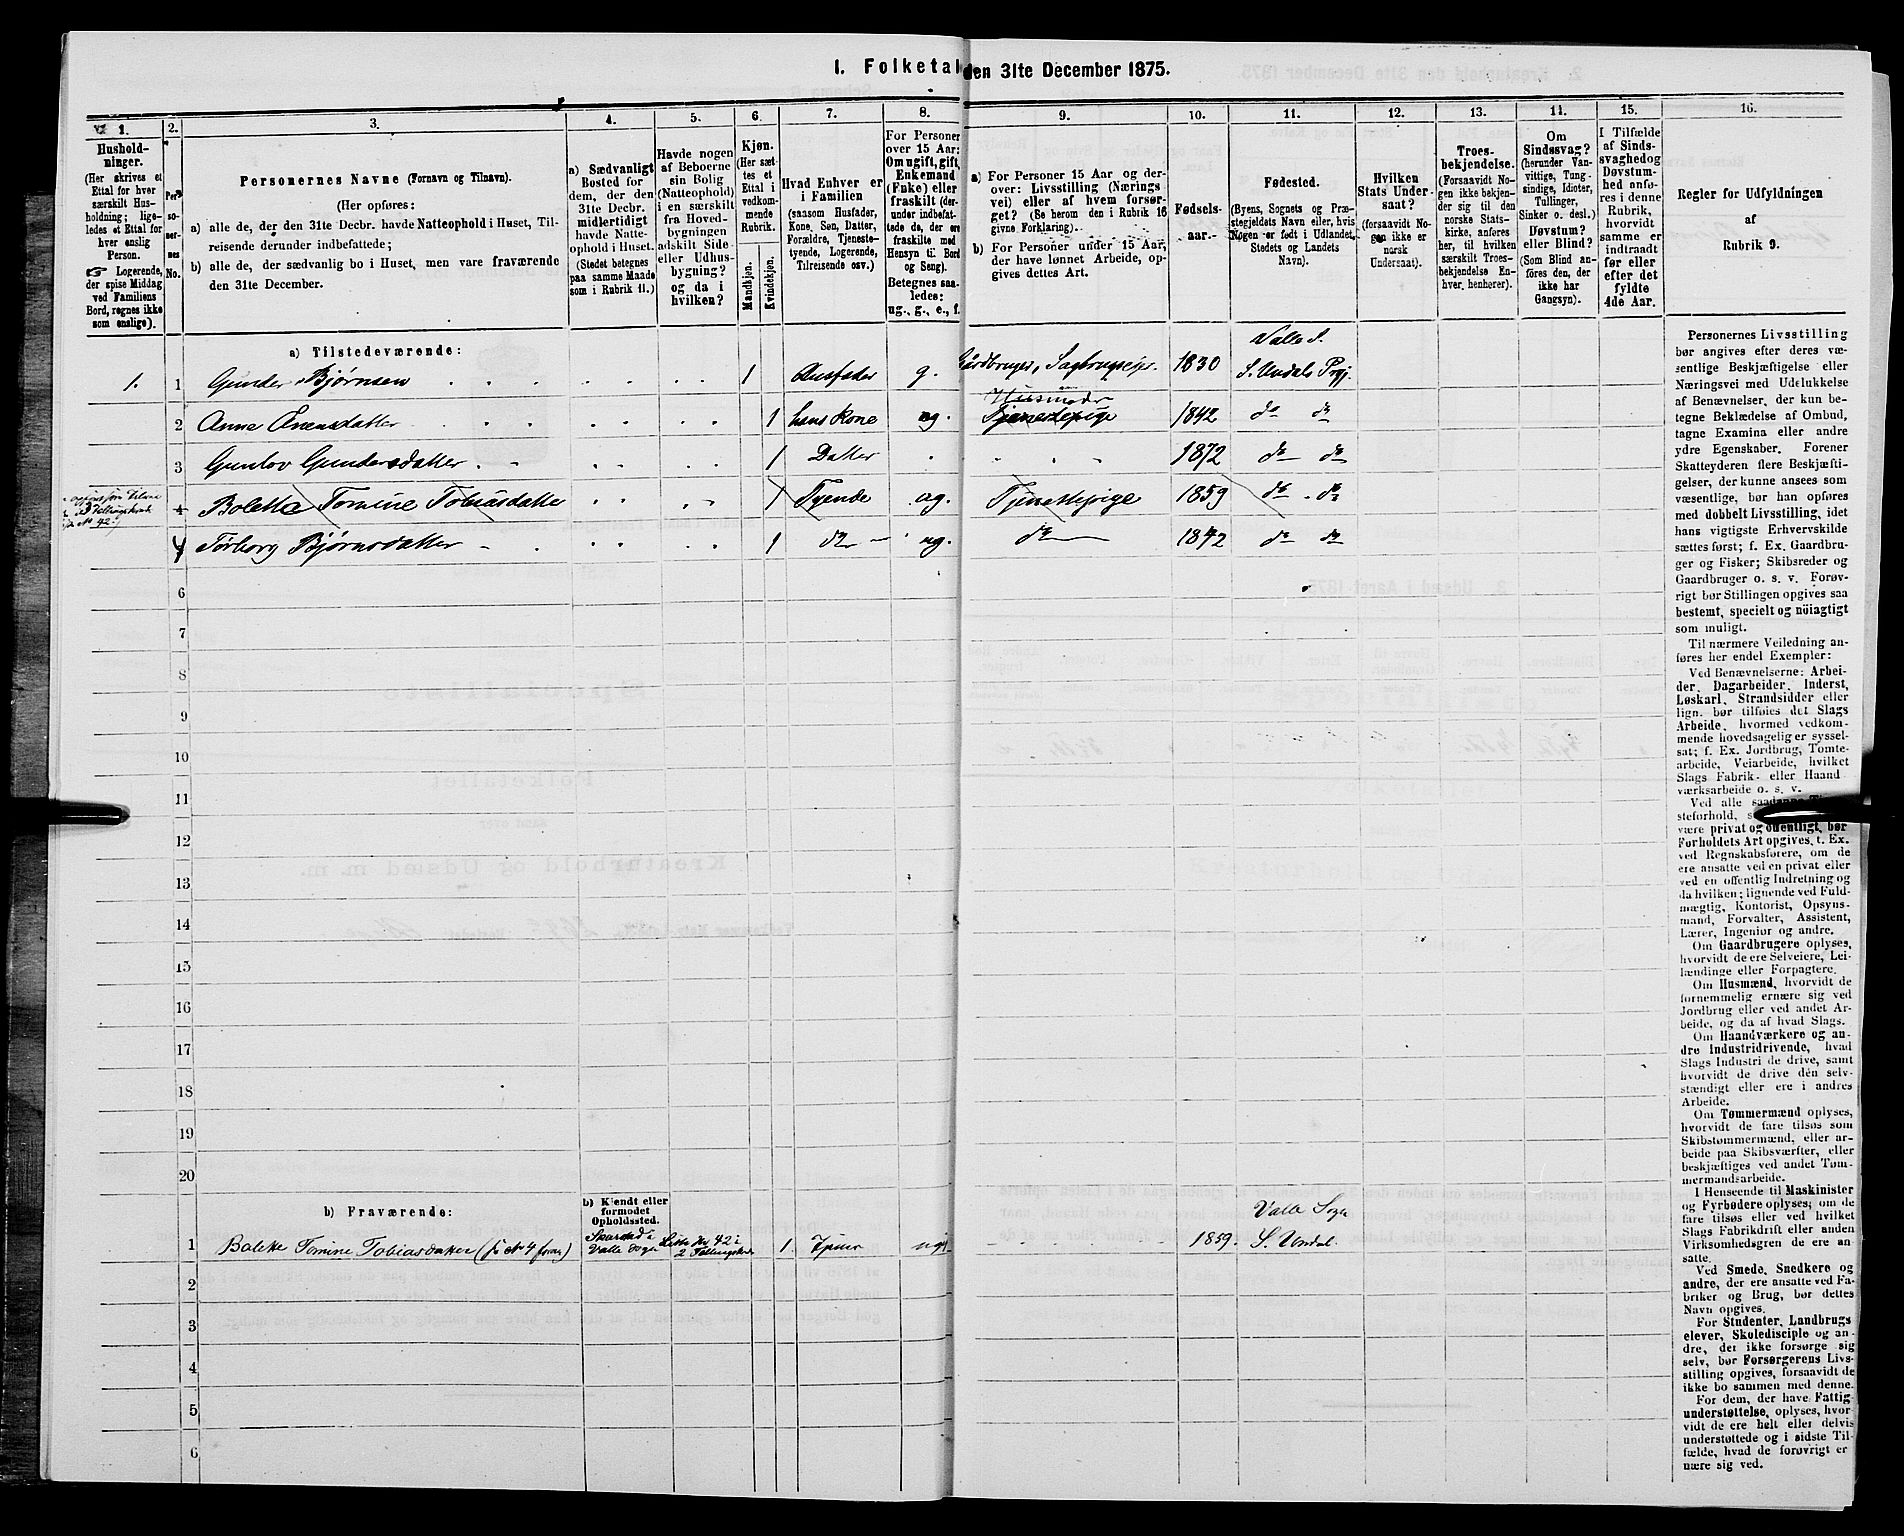 I. Folketal den 31te December 1875.
1. 2. 3. 4. 5. 6. 7. 8. 9. 10. 11. 12. 13. 14. 15. 16.
Hushold-
ninger.
(Her skrives et
Ettal for hver
særskilt Hus-
holdning; lige-
ledes et Ettal for
hver enslig
Person.
☞ Logerende,
der spise Middag
ved Familiens
Bord, regnes ikke
som enslige).
Per-
so-
ner-
nes
No.
Personernes Navne (Fornavn og Tilnavn).
(Her opføres:
a) alle de, der den 31te Decbr. havde Natteophold i Huset, Til-
reisende derunder indbefattede;
b) alle de, der sædvanlig bo i Huset, men vare fraværende
den 31te December.
a) Sædvanligt
Bosted for
dem, der den
31te Decbr.
midlertidigt
havde Natte-
ophold i Huset.
(Stedet betegnes
paa samme Maade
som i Rubrik 11.)
Havde nogen
af Beboerne
sin Bolig
(Natteophold)
i en særskilt
fra Hoved-
bygningen
adskilt Side-
eller Udhus-
bygning?
og da i
hvilken?
Kjøn.
(Her sæt-
tes et
Ettal i
vedkom-
mende
Rubrik.
Mandkjøn.
Kvindekjøn.
Hvad Enhver er
i Familien
(saasom Husfader,
Kone, Søn, Datter,
Forældre, Tjeneste-
tyende, Logerende,
Tilreisende osv.)
For Personer
over 15 Aar:
Om ugift, gift,
Enkemand
(Enke) eller
fraskilt (der-
under indbefat-
tede de, der ere
fraskilte med
Hensyn til Bord
og Seng).
Betegnes saa-
ledes:
ug., g., e., f.
a) For Personer 15 Aar og der-
over: Livsstilling (Nærings
vei) eller af hvem forsør-
get? (Se herom den i Rubrik 16
givne Forklaring).
b) For Personer under 15 Aar,
der have lønnet Arbeide, op-
gives dettes Art.
Fødsels-
aar.
Fødested.
(Byens, Sognets og Præ-
stegjeldets Navn eller, hvis
Nogen er født i Udlandet,
Stedets og Landets
Navn).
Hvilken
Stats Under-
saat?
(forsaavidt No-
gen ikke er
norsk
Undersaat).
Troes-
bekjendelse.
(Forsaavidt No-
gen ikke beken-
der sig til den
norske Stats-
kirke, anfø-
res her, til hvilken
særskilt Troes-
bekjendelse En-
hver, henhører).
Om
Sindssvag?
(herunder Van-
vittige, Tung-
sindige, Idioter,
Tullinger,
Sinker o. desl.)
Døvstum?
eller Blind?
(Som Blind an-
føres den, der
ikke har
Gangsyn).
I Tilfælde
af Sinds-
svaghed og
Døvstum-
hed anfø-
res i denne
Rubrik,
hvorvidt
samme er
indtraadt
før eller
efter det
fyldte
4de Aar.
Regler for Udfyldningen
af
Rubrik 9.
a) Tilstedeværende:
1. 1 Gunder Bjørnsen 1 Husfader g. Gårdbruger, Sagbrugsejer. 1830 Valle S. S. Undals Prgj.
2 Anne Evensdatter 1 hans Kone ug. Tjenestepige Husmoder 1842 do do
3 Gunlov Gundersdatter 1 Datter 1872 do do
4 Bolette Tomine Tobiasdatter 1 Tyende ug. Tjenestepige 1859 do do
4 Torborg Bjørnsdatter 1 do ug. do 1842 do do
6
7
8
9
10
11
12
13
14
15
16
17
18
19
20
b) Fraværende:
b) Kjendt eller
formodet
Opholdssted.
1 Bolette Tomine Tobiasdatter (se No 4 foran) Valle Sogn Liste No 42 i 2 Tellingskreds 1 Tjener ug. 1859. Valle Sogn S. Undal.
2
3
4
5
6
Personernes Livsstilling
bør angives efter deres væ-
sentlige Beskjæftigelse eller
Næringsvei med Udelukkelse
af Benævnelser, der kun be-
tegne Beklædelse af Ombud,
tagne Examina eller andre
ydre Egenskaber. Forener
Skatteyderen flere Beskjæfti-
gelser, der kunne ansees som
væsentlige, bør han opføres
med dobbelt Livsstilling, idet
hans vigtigste Erhvervskilde
sættes først; f. Ex. Gaardbru-
ger og Fisker; Skibsreder og
Gaardbruger o. s. v. Forøv-
rigt bør Stillingen opgives saa
bestemt, specielt og nöiagtigt
som muligt.
Til nærmere Veiledning an-
føres her endel Exempler:
Ved Benævnelserne: Arbei-
der, Dagarbeider, Inderst,
Løskarl, Strandsidder eller
lign. bør tilføies det Slags
Arbeide, hvormed vedkom-
mende hovedsagelig er syssel-
sat; f. Ex. Jordbrug, Tomte-
arbeide, Veiarbeide, hvilket
Slags Fabrik- eller Haand
værksarbeide o. s. v.
Ved alle saadanne
steforhold,
være privat og offentligt, bør
Forholdets Art opgives, f. Ex.
ved Regnskabsførere, om de
ere ansatte ved en privat eller
ved en offentlig Indretning og
da hvilken; lignende ved Fuld-
mægtig, Kontorist, Opsyns-
mand, Forvalter, Assistent,
Lærer, Ingeniør og andre.
Om Gaardbrugere oplyses,
hvorvidt de ere Selveiere, Lei-
lændinge eller Forpagtere.
Om Husmænd, hvorvidt de
fornemmelig ernære sig ved
Jordbrug eller ved andet Ar-
beide, og da af hvad Slags.
Om Haandværkere og an-
dre Industridrivende, hvad
Slags Industri de drive, samt
hvorvidt de drive den selv-
stændigt eller ere i andres
Arbeide.
Om Tømmermænd oplyses,
hvorvidt de fare tilsøs som
Skibstømmermænd, eller ar-
beide paa Skibsværfter, eller
beskjæftiges ved andet Tøm-
mermandsarbeide.
I Henseende til Maskinister
og Fyrbødere oplyses, om de
fare tilsøs eller ved hvilket
Slags Fabrikdrift eller anden
Virksomhedsgren de ere an-
satte.
Ved Smede, Snedkere og
andre, der ere ansatte ved Fa-
briker og Brug, bør dettes
Navn opgives.
For Studenter, Landbrugs
elever, Skoledisciple og an-
dre, der ikke forsørge sig
selv, bør Forsørgerens Livs-
stilling opgives, forsaavidt de
ikke bo sammen med denne.
For dem, der have Fattig-
understøttelse, oplyses, hvor-
vidt de ere helt eller delvis
understøttede og i sidste Til-
fælde, hvad de forøvrigt er-
nære sig ved.